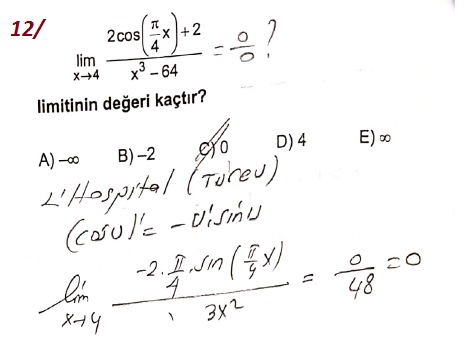 12/
lim x→4 (2cos(π/4 x) + 2) / (x³ – 64) = 0/0 ?
limitinin değeri kaçtır?
A) –∞ B) –2 C) 0 D) 4 E) ∞
L'Hospital (Türev)
(cosu)' = -u'.sinu
lim x→4 (-2.π/4.sin(π/4 x)) / (3x²) = 0/48 = 0